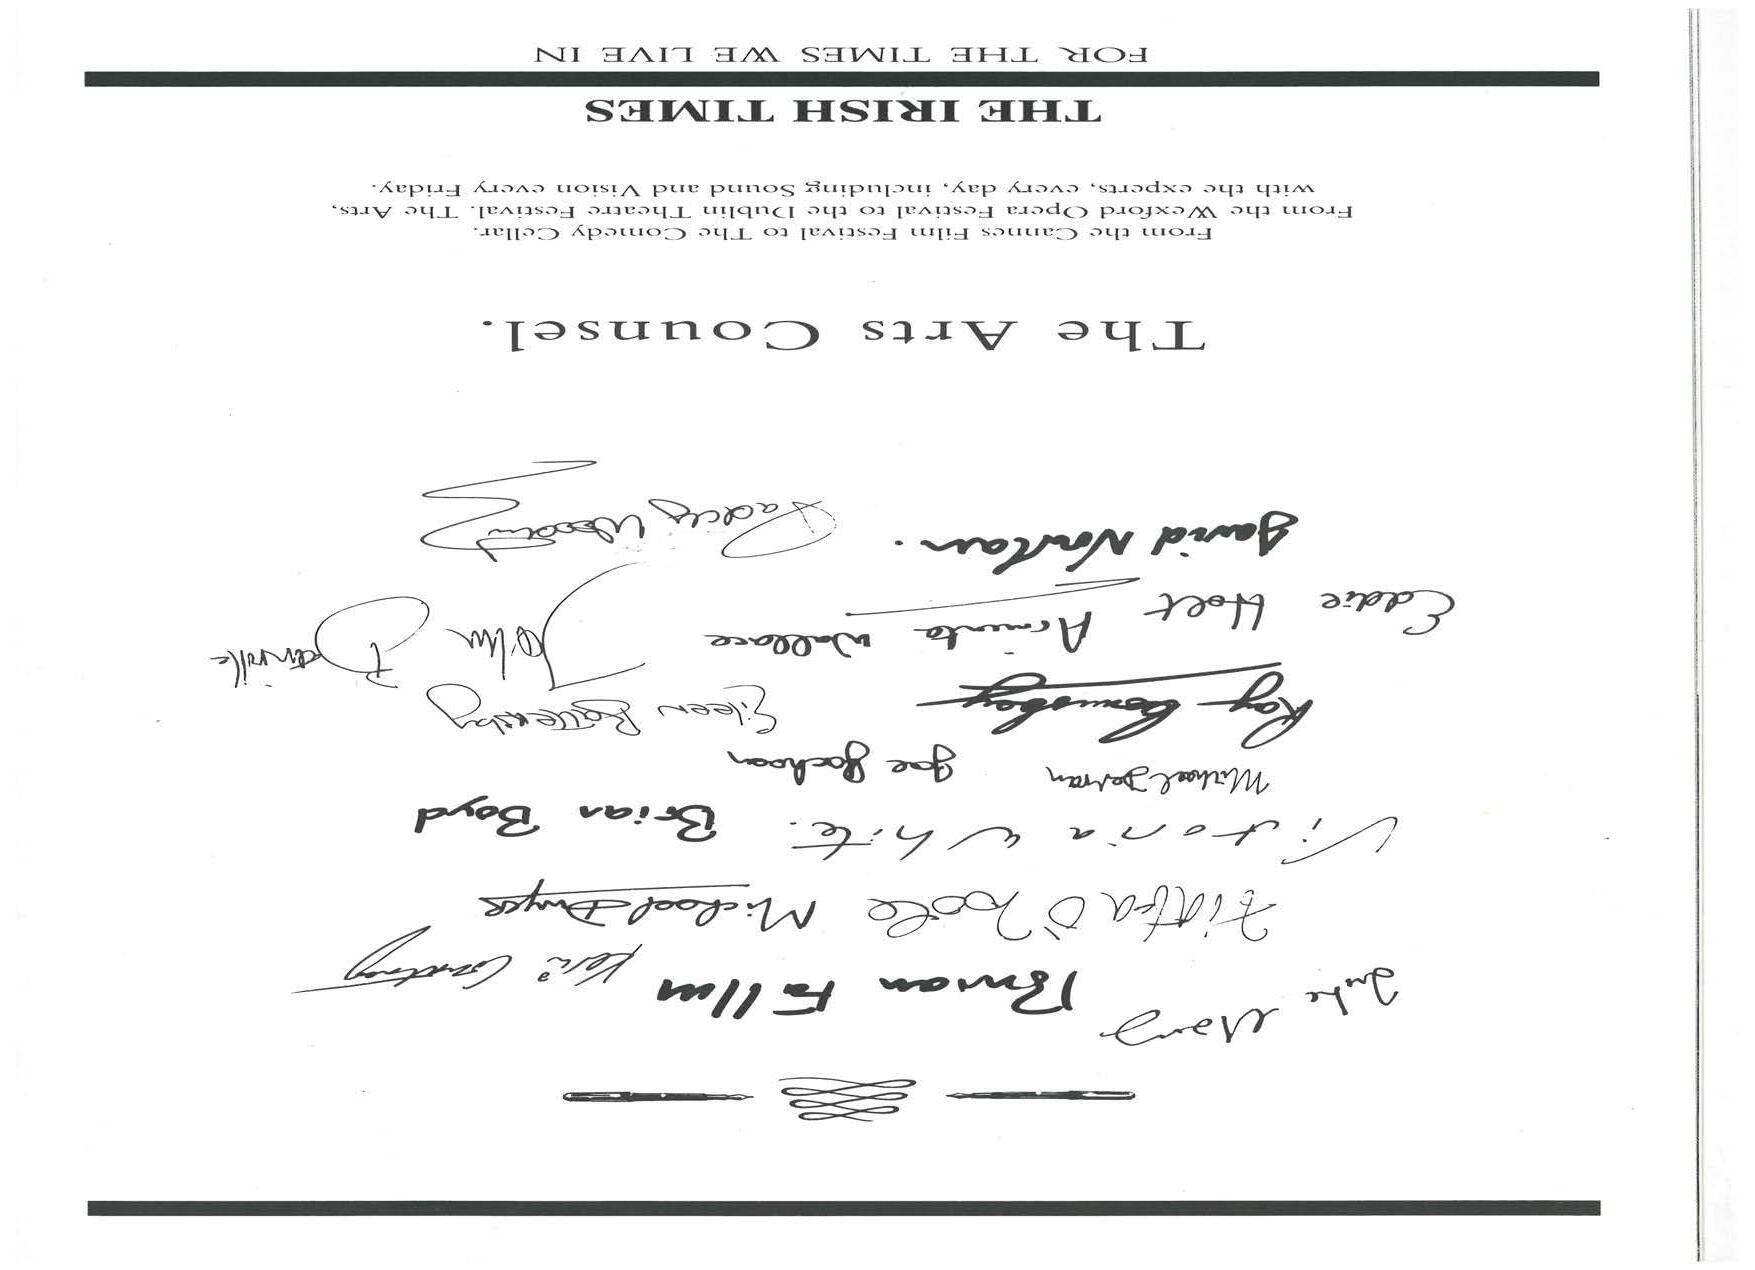 Luke Clancy Brian Fallon Kevin Courtney
Fintan O'Toole Michael Dwyer
Victoria White. Brian Boyd
Michael Dervan Joe Jackson
Ray Comiskey Eileen Battersby
Eddie Holt Arminta Wallace John Banville
David Nowlan. Paddy Woodworth
The Arts Counsel.
From the Cannes Film Festival to The Comedy Cellar.
From the Wexford Opera Festival to the Dublin Theatre Festival. The Arts,
with the experts, every day, including Sound and Vision every Friday.
THE IRISH TIMES
FOR THE TIMES WE LIVE IN